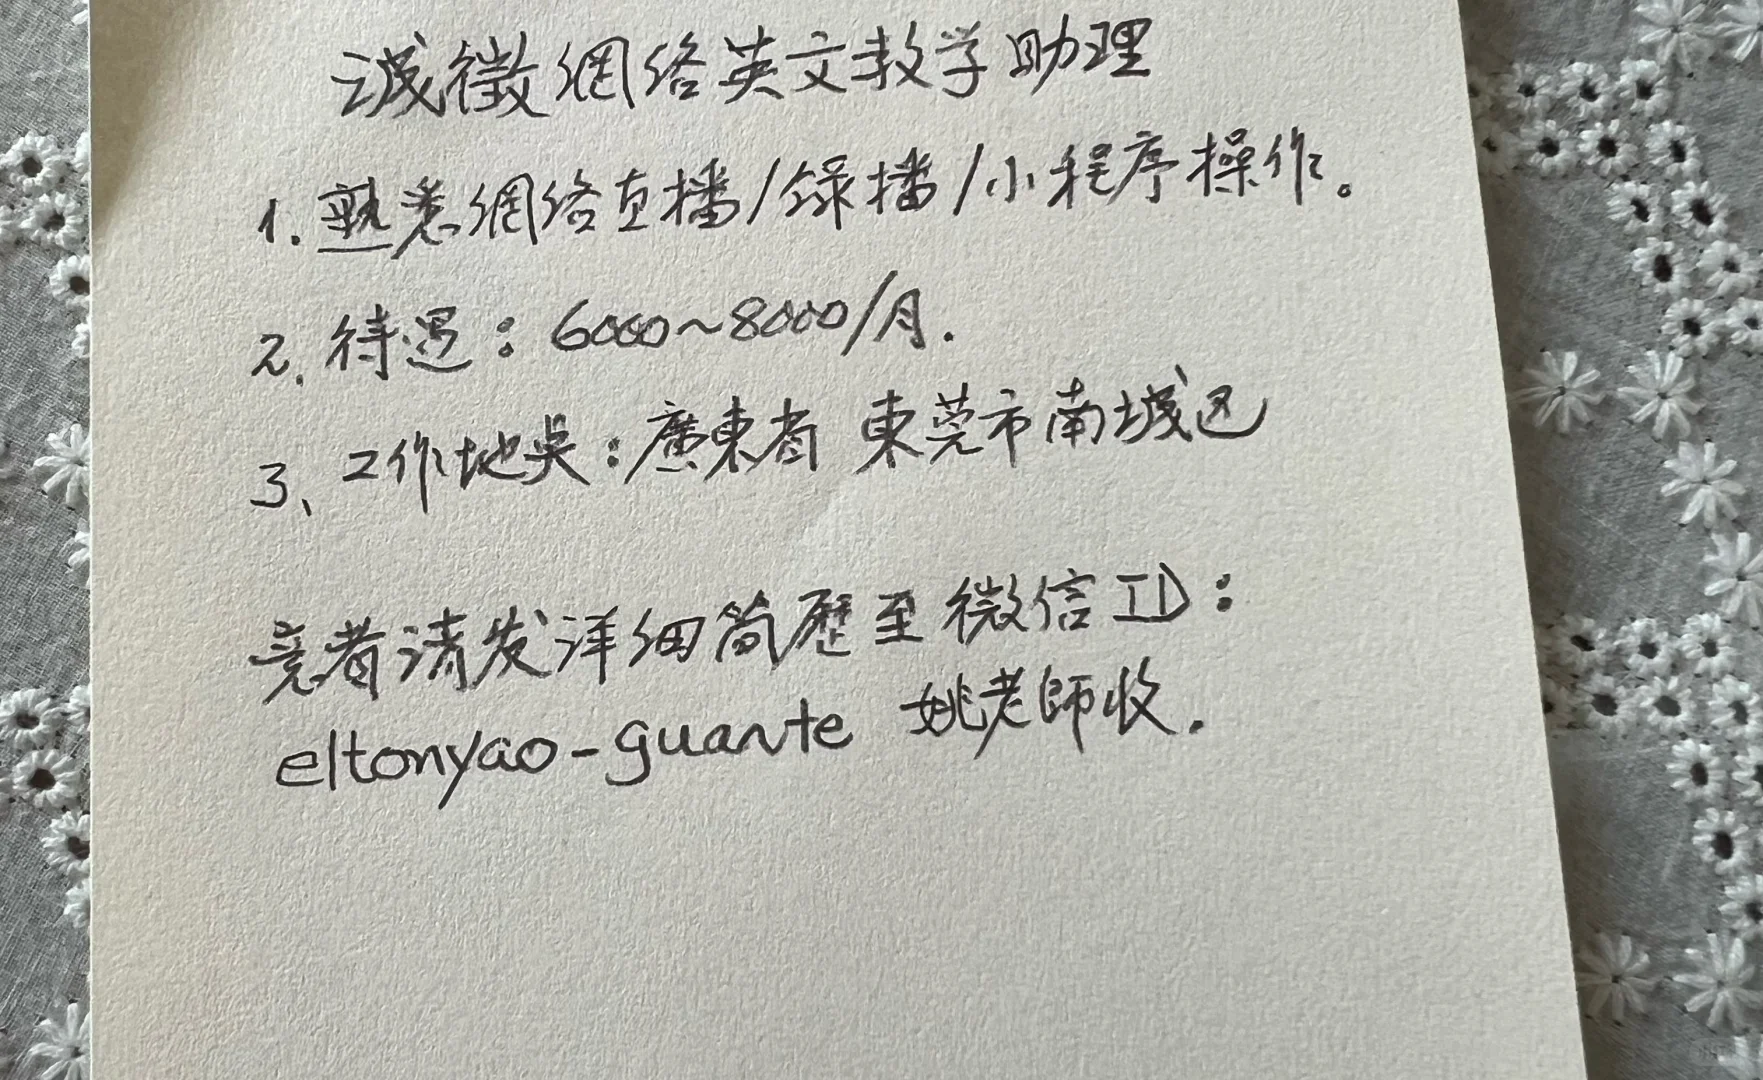 誠徵網络英文教学助理
1. 熟悉網络直播/錄播/小程序操作。
2. 待遇：6000~8000/月.
3、工作地点：廣東省 東莞市南城区
竞者请发详细简歷至微信ID：
eltonyao-guante 姚老師收.